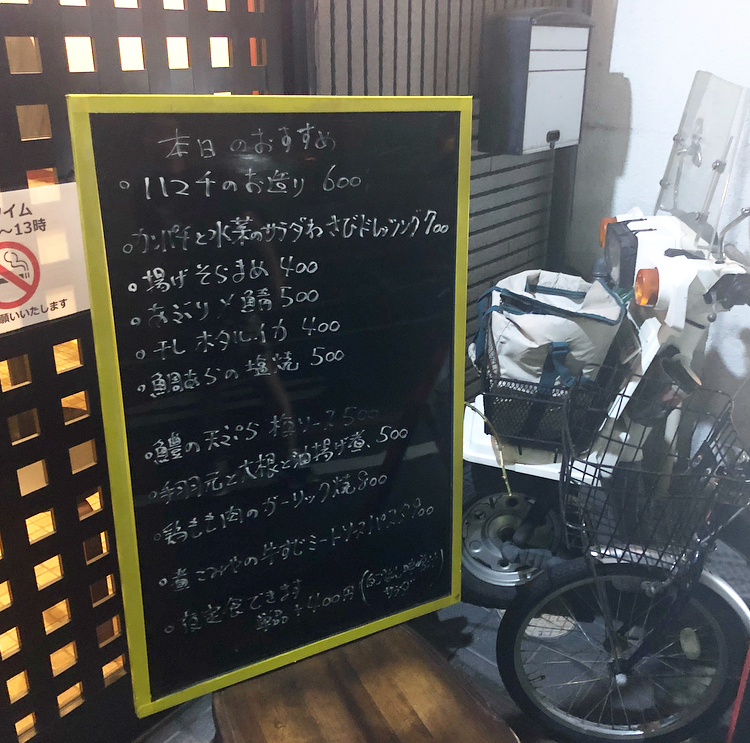 本日のおすすめ
。ハマチのお造り 600
。カンパチと水菜のサラダわさびドレッシング 700
。揚げそらまめ 400
。あぶり〆鯖 500
。干しホタルイカ 400
。鯛あらの塩焼 500
。鱧の天ぷら 梅ソース 500
。手羽元と大根と油揚げ煮、500
。鶏もも肉のガーリック焼 800
。煮こみやの牛すじミートソースパスタ
。定食できます
単品+400円
イム
~13時
願いいたします